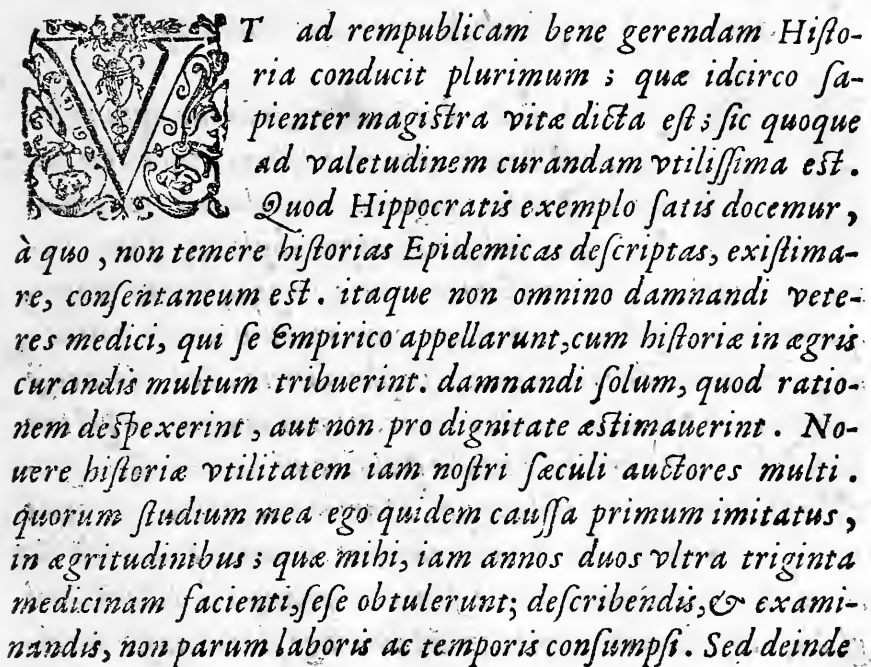 VT ad rempublicam bene gerendam Histo-
ria conducit plurimum ; quæ idcirco sa-
pienter magistra vitæ dicta est ; sic quoque
ad valetudinem curandam vtilissima est .
Quod Hippocratis exemplo satis docemur ,
à quo , non temere historias Epidemicas descriptas, existima-
re, consentaneum est . itaque non omnino damnandi vete-
res medici, qui se Empirico appellarunt, cum historiæ in ægris
curandis multum tribuerint. damnandi solum, quod ratio-
nem despexerint , aut non pro dignitate æstimauerint . No-
uere historiæ vtilitatem iam nostri sæculi auctores multi .
quorum studium mea ego quidem caussa primum imitatus ,
in ægritudinibus ; quæ mihi, iam annos duos vltra triginta
medicinam facienti, sese obtulerunt; describendis, & exami-
nandis, non parum laboris ac temporis consumpsi . Sed deinde